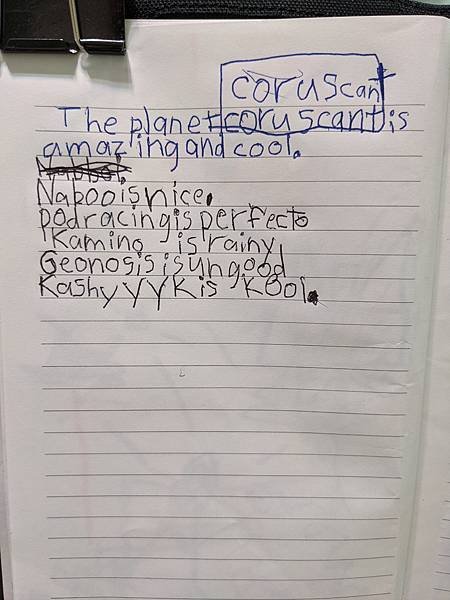 coruscant
The planet coruscant is
amazing and cool.
Naboo is nice.
podracing is perfecto
Kamino is rainy
Geonosis is ungood
Kashyyyk is kool.